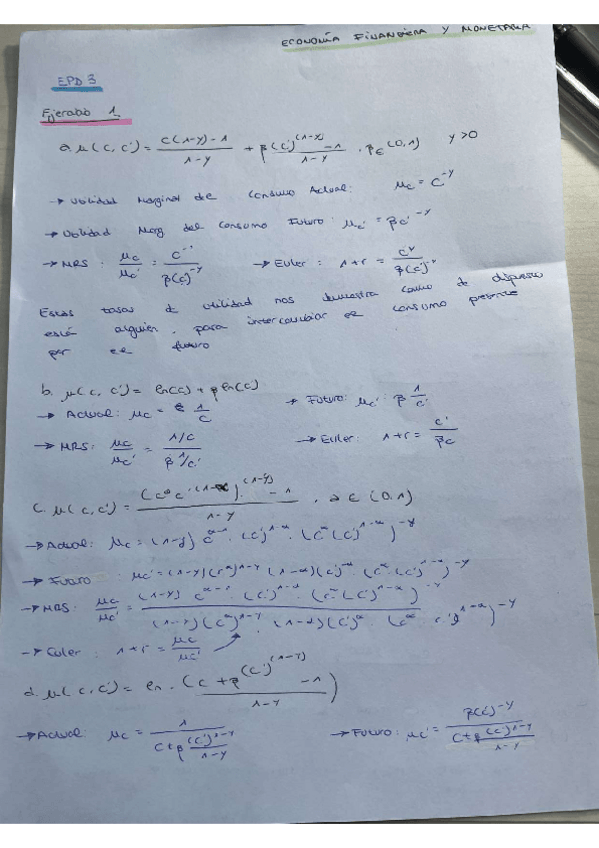 ECONOMÍA FINANCIERA Y MONETARIA
EPD:3
Ejercicio 1.
a. μ(c, c') = (c(1-γ) - 1)/(1-γ) + β(c')^(1-γ) - 1/(1-γ) , β ∈ (0,1) γ>0
→ Utilidad Marginal de Consumo Actual: μc = c^-γ
→ Utilidad Marg del Consumo Futuro: μc' = βc'^-γ
→ MRS: μc/μc' = c^-γ/β(c')^-γ → Euler: 1+r = c^-γ/β(c')^-γ
Estas tasas de utilidad nos demuestra como de dispuesto
está alguien, para intercambiar el consumo presente
por el futuro
b. μ(c, c') = ln(c) + β ln(c')
→ Actual: μc = 1/c → Futuro: μc' = β 1/c'
→ MRS: μc/μc' = (1/c)/(β 1/c') → Euler: 1+r = c'/βc
c. μ(c, c') = ((c^α c'^(1-α))^(1-γ) - 1)/(1-γ) , α ∈ (0,1)
→ Actual: μc = (1-γ) c^α-1 · (c')^1-α · (c^α (c')^1-α)^-γ
→ Futuro: μc' = (1-γ)(c^α)^1-γ (1-α)(c')^-α · (c^α (c')^1-α)^-γ
→ MRS: μc/μc' = ((1-γ) c^α-1 · (c')^1-α · (c^α (c')^1-α)^-γ)/((1-γ)(c^α)^1-γ · (1-α)(c')^α · (c^α c')^1-α)^-γ
→ Euler: 1+r = μc/μc'
d. μ(c, c') = ln · (c + β (c')^(1-γ) - 1/(1-γ))
→ Actual: μc = 1/(c+β (c')^1-γ/(1-γ)) → Futuro: μc' = β(c')^-γ/(c+β (c')^1-γ/(1-γ))